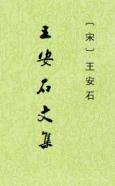 〔宋〕王安石
王安石文集